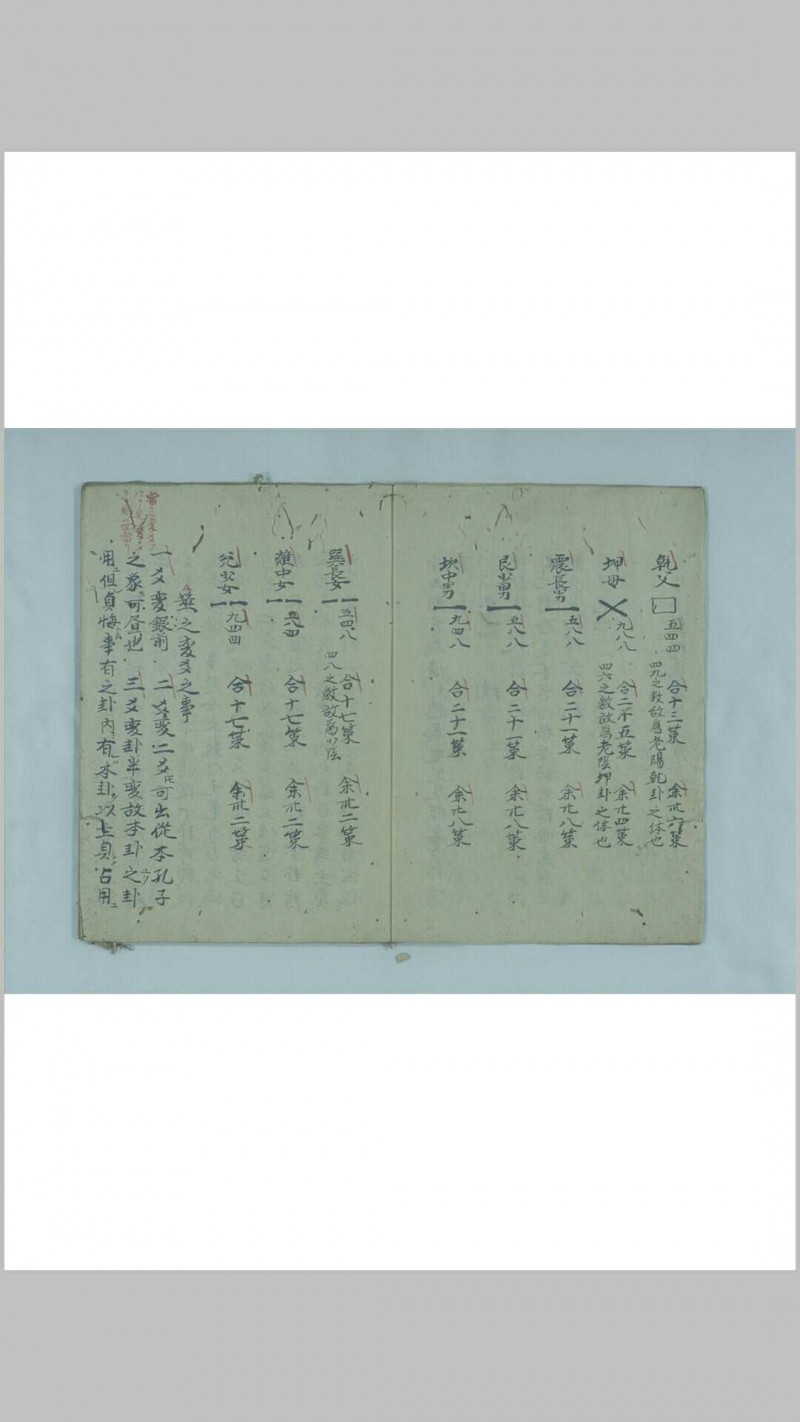 乾父 五四四 合十三策 余卅六策
四九之数故為老陽乾卦之体也
坤母 九八八 合二十五策 余廿四策
四六之数故為老陰坤卦之体也
震長男 五八八 合二十一策 余廿八策
艮少男 五八八 合二十一策 余廿八策
坎中男 九四八 合二十一策 余廿八策
巽長女 五四八 合十七策 余卅二策
四八之数故為少陰
離中女 五八四 合十七策 余卅二策
兌少女 九四四 合十七策 余卅二策
筮之変爻之事
一爻変 前 二爻変二爻 可出従本孔子
之象可 也 三爻変卦半変故本卦之卦
用但貞悔事有之卦内有本卦以上貞占用